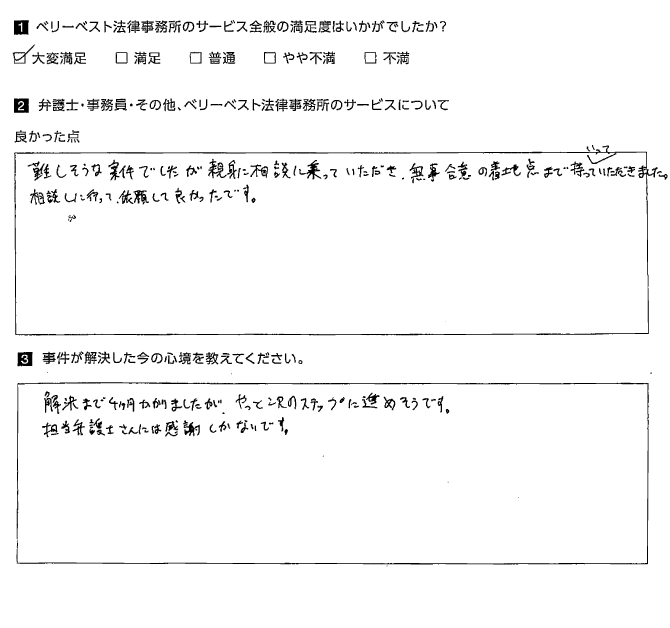 1 ベリーベスト法律事務所のサービス全般の満足度はいかがでしたか?
☑ 大変満足 □ 満足 □ 普通 □ やや不満 □ 不満
2 弁護士・事務員・その他、ベリーベスト法律事務所のサービスについて
良かった点
難しそうな案件でしたが親身に相談に乗っていただき、無事合意の着地点まで持っていっていただきました。
相談しに行って、依頼して良かったです。
3 事件が解決した今の心境を教えてください。
解決まで4ヶ月かかりましたが、やっと次のステップに進めそうです。
担当弁護士さんには感謝しかないです。